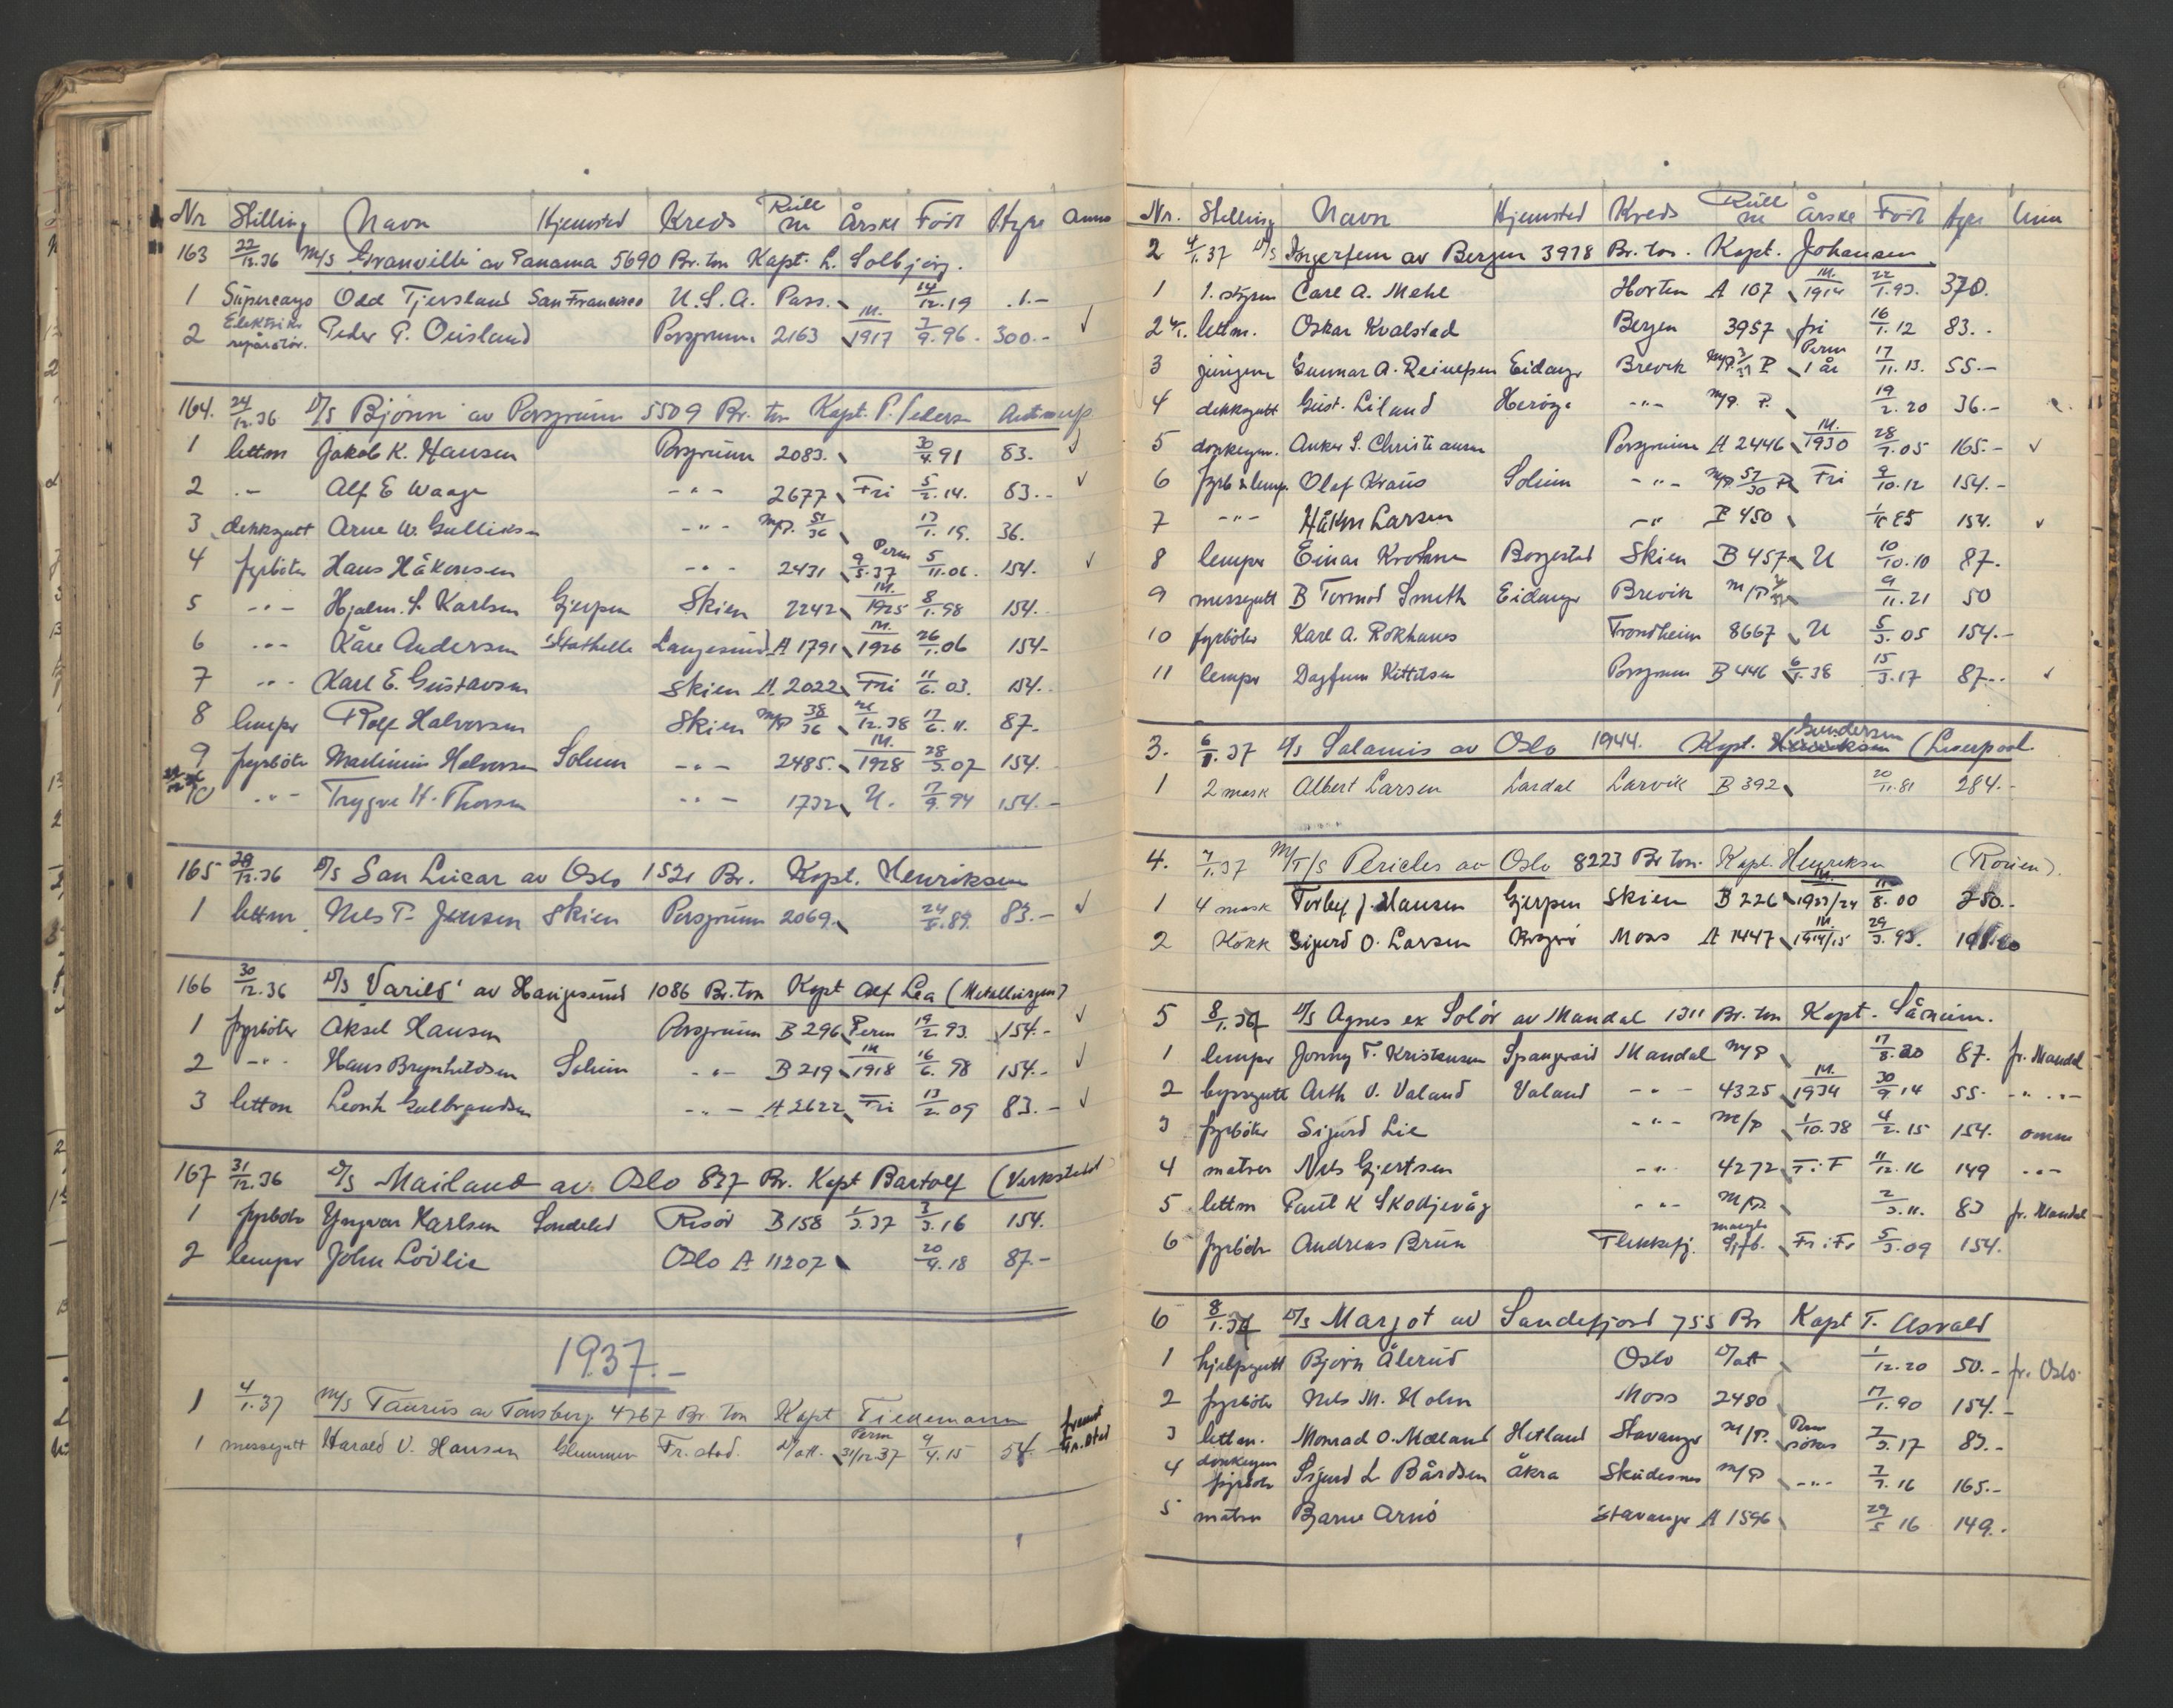 Nr Stilling Navn Hjemsted Kreds Rull nr Årskl Född Hyre Anm
163 22/12.36 M/S Granville av Panama 5690 Br. ton Kapt. L. Solbjörg.
1 Supercargo Odd Tjersland San Francisco U.S.A. Pass. 14/12.19 .1.-
2 Elektriker reparatör. Peder P. Ousland Porsgrunn 2163 M. 1917 7/9.96. 300.-
164. 24/12.36 D/S Bjönn av Porsgrunn 5509 Br. ton Kapt. P. Peders Antwerp
1 lettm Jakob K. Hansen Porsgrunn 2083. 30/4.91 83.
2 .- Alf E Waage -"- 2677 Fri 5/2.14. 83.-
3 dekksgutt Arne W. Gulliks -"- M/P. 51/36 17/1.19. 36.
4 fyrböter Hans Håkonsen -"- 2431 Perm 9/5.37 5/11.06. 154.
5 -"- Hjalm. S. Karlsen Gjerpen Skien 2242 M. 1925 8/1.98 154.
6 -"- Kåre Andersen Stathelle Langesund A 1791 M. 1926 26/1.06 154-
7 -"- Karl E. Gustavsen Skien A. 2022 Fri 11/6.03. 154.
8 lemper Rolf Halvorsen Skien M/P 38/36 21/12.38 17/6.11. 87.
9 fyrböter Martinius Halvorsen Solum -"- 2485. M. 1928 28/3.07 154.
10 -"- Trygve H. Thorsen -"- 1732 U. 17/9.94 154.-
165 28/12.36 D/S San Lucar av Oslo 1521 Br. Kapt. Henriksen
1 lettm. Nils T. Jensen Skien Porsgrunn 2069. 24/8.89. 83.-
166 30/12.36 D/S Varild av Haugesund 1086 Br. ton Kapt Alf Lea (Metallurgen)
1 fyrböter Aksel Hansen Porsgrunn B 296 Perm 19/2.93. 154.-
2 -"- Hans Brynhildsen Solum -"- B 219 M 1918 16/6.98 154.-
3 lettm Leonh Gulbrandsen -"- A 2622 Fri 13/2.09 83.-
167 31/12.36 D/S Mailand av Oslo 837 Br. Kapt Bartolf (Verkstedet)
1 fyrböter Yngvar Karlsen Söndeled Risör B 158 1/3.37 3/3.16 154.
2 lemper John Lövlie Oslo A 11207 20/4.18 87.-
1937.-
1 4/1.37 M/S Taurus av Tönsberg 4767 Br. ton Kapt Tiedemann
1 messegutt Harald V. Hansen Glemmen Fr.stad. D/att. Perm 31/12.37 9/4.15 54.- Fr.stad
Nr. Stilling Navn Hjemsted Kreds Rull nr Årskl Född Hyre Anm
2 4/1.37 D/S Ingerfem av Bergen 3978 Br. ton. Kapt. Johansen
1 1. styrm Carl A. Mehl Horten A 107 M. 1914 22/1.93. 370.
2 lettm. Oskar Kvalstad Bergen 3957 fri 16/1.12 83.-
3 jungm Gunnar A. Reinersen Eidanger Brevik M/P. 3/37 P Perm 1 år 17/11.13. 55.-
4 dekksgutt Gust. Liland Heröya -"- M/P. P. 19/2.20 36.-
5 donkeym. Anker S. Christiansen Porsgrunn A 2446 M. 1930 28/7.05 165.-
6 fyrb & lemp. Olaf Kraus Solum -"- M/P. 57/30 P Fri 9/10.12 154.-
7 -"- Håkon Larsen -"- B 450 154.
8 lemper Einar Krohn Borgestad Skien B 457 U 10/10.10 87.
9 messegutt B Tormod Smeth Eidanger Brevik M/P 9/11.21 50
10 fyrböter Karl A. Rokhaus Trondheim 8667 U 5/3.05 154.-
11 lemper Dagfinn Kittilsen Porsgrunn B 446 6/1.38 15/3.17 87.-
3. 6/1.37 D/S Salamis av Oslo 1944. Kapt. Gundersen (Liverpool
1 2 mask Albert Larsen Lardal Larvik B 392 20/11.81 284.-
4. 7/1.37 M/T/S Pericles av Oslo 8223 Br ton. Kapt. Henriksen (Rouen).
1 4 mask Torleif J. Hansen Gjerpen Skien B 226 M. 1923/24 11/8.00 250.-
2 Kokk Sigurd O. Larsen Moss A 1447 M. 1914/15 29/3.93.
5 8/1.37 D/S Agnes ex Solör av Mandal 1311 Br. ton Kapt. Sånum.
1 lemper Jonny T. Kristensen Spangereid Mandal M/P 17/8.20 87. fr. Mandal
2 byssegutt Arth O. Valand Valand -"- 4325 M. 1934 30/9 14 55.- -"-
3 fyrböter Sigurd Lie -"- M/P 1/10.38 4/2.15 154. omm
4 matros Nils Gjertsen -"- 4272 F.i.F 11/12.16 149 -"-
5 lettm Paul K Skodjevåg -"- M/P. 2/3.11. 83 fr. Mandal
6 fyrböter Andreas Brun Flekkefj. mangler Sjfb. Fr.i.Fr 5/3.09 154.
6 8/1.37 D/S Margot av Sandefjord 755 Br Kapt T. Asvald
1 hjelpegutt Björn Ålerud Oslo D/att 1/12.20 50.- fr. Oslo.
2 fyrböter Nils M. Holm Moss 2480 17/1.90 154.-
3 lettm. Monrad O. Mæland Hetland Stavanger M/P. Perm sökes 7/3.17 83.-
4 donkeym fyrböter Sigurd L Bårdsen Åkra Skudesnes M/P -"- 7/7.16 165.-
5 matros Bjarne Arnö Stavanger A 1596 29/5 16 149.-